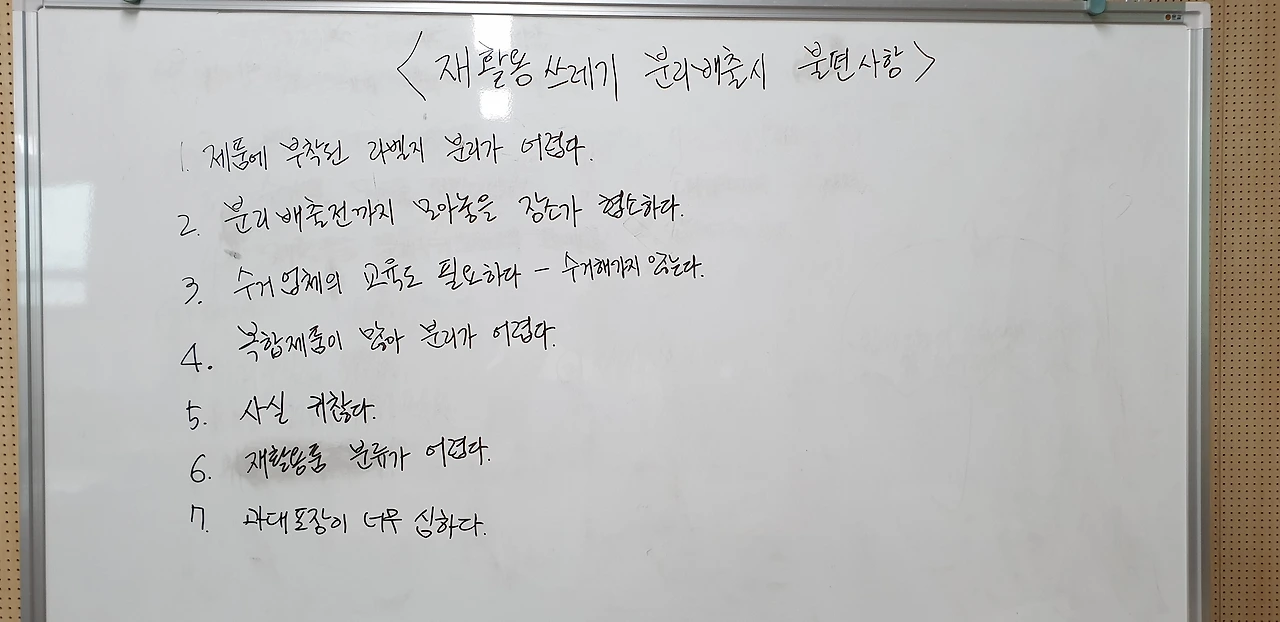 <재활용쓰레기 분리배출시 불편사항>
1. 제품에 부착된 라벨지 분리가 어렵다.
2. 분리배출전까지 모아놓을 장소가 협소하다.
3. 수거업체의 교육도 필요하다 - 수거해가지 않는다.
4. 복합제품이 많아 분리가 어렵다.
5. 사실 귀찮다.
6. 재활용품 분류가 어렵다.
7. 과대포장이 너무 심하다.